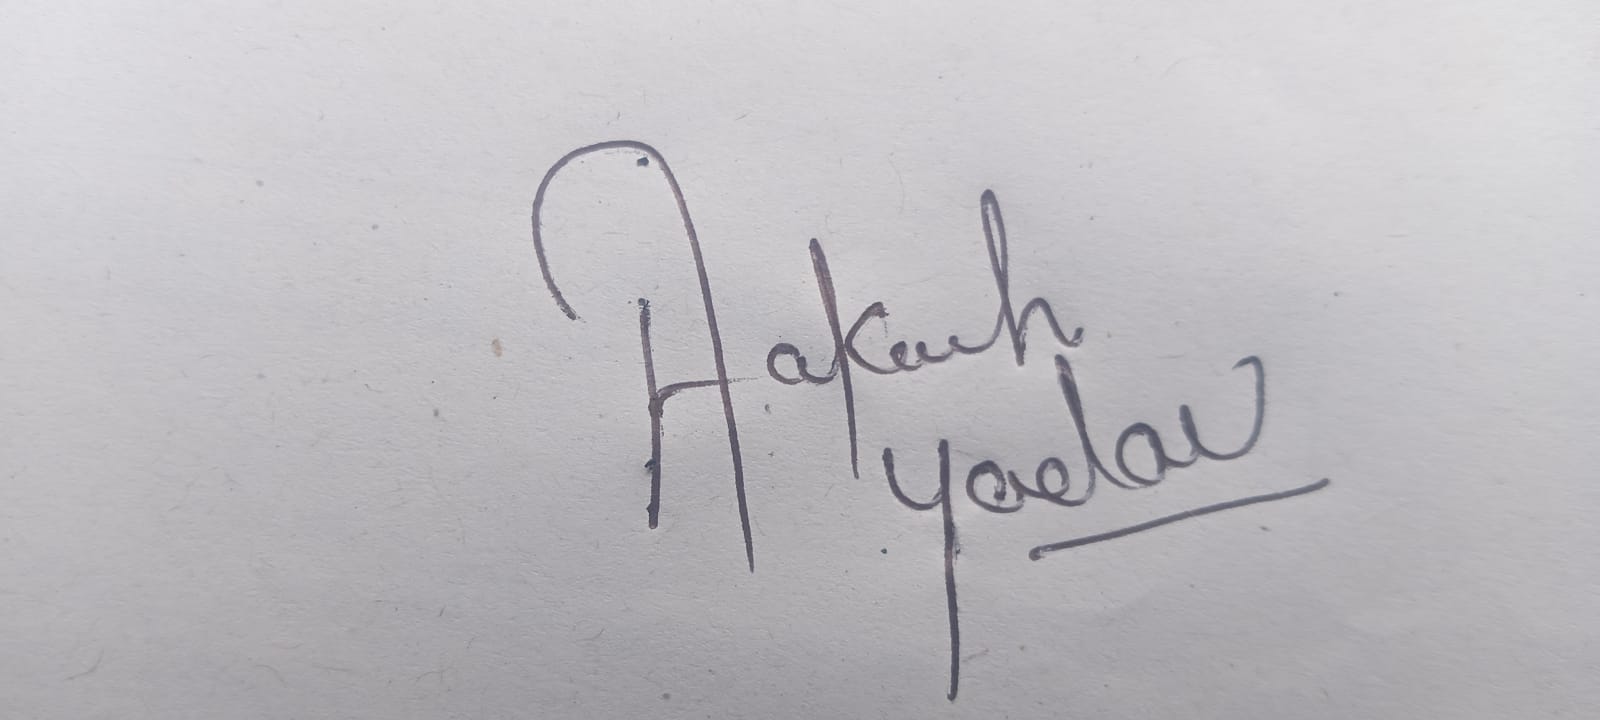 Aakash
Yadav